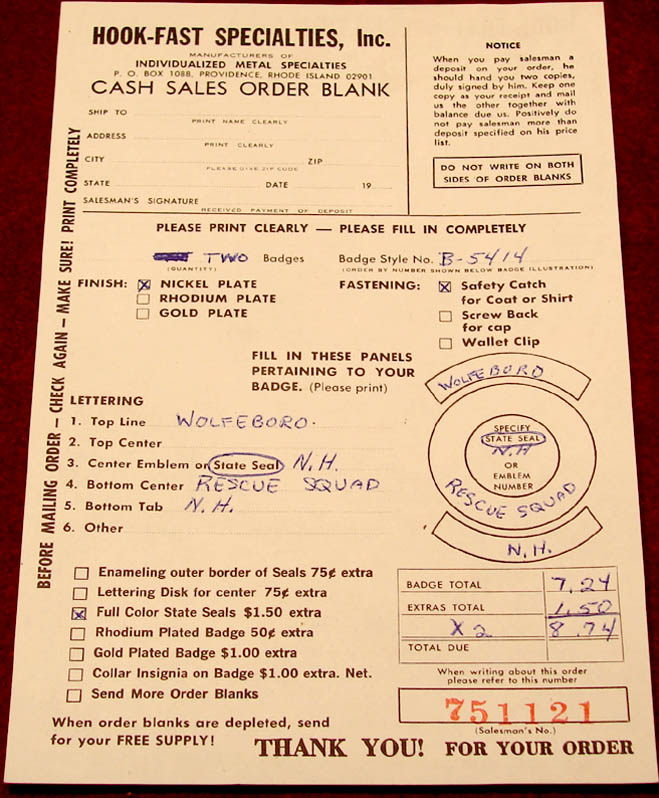 HOOK-FAST SPECIALTIES, Inc.
MANUFACTURERS OF
INDIVIDUALIZED METAL SPECIALTIES
P. O. BOX 1088, PROVIDENCE, RHODE ISLAND 02901
CASH SALES ORDER BLANK
SHIP TO
PRINT NAME CLEARLY
ADDRESS
PRINT CLEARLY
CITY ZIP
PLEASE GIVE ZIP CODE
STATE DATE 19
SALESMAN'S SIGNATURE
RECEIVED PAYMENT OF DEPOSIT
NOTICE
When you pay salesman a
deposit on your order, he
should hand you two copies,
duly signed by him. Keep one
copy as your receipt and mail
us the other together with
balance due us. Positively do
not pay salesman more than
deposit specified on his price
list.
DO NOT WRITE ON BOTH
SIDES OF ORDER BLANKS
BEFORE MAILING ORDER – CHECK AGAIN – MAKE SURE! PRINT COMPLETELY
PLEASE PRINT CLEARLY — PLEASE FILL IN COMPLETELY
TWO Badges
(QUANTITY)
Badge Style No. B-5414
(ORDER BY NUMBER SHOWN BELOW BADGE ILLUSTRATION)
FINISH: NICKEL PLATE
RHODIUM PLATE
GOLD PLATE
FASTENING: Safety Catch
for Coat or Shirt
Screw Back
for cap
Wallet Clip
FILL IN THESE PANELS
PERTAINING TO YOUR
BADGE. (Please print)
LETTERING
1. Top Line WOLFEBORO.
2. Top Center
3. Center Emblem or State Seal N.H.
4. Bottom Center RESCUE SQUAD
5. Bottom Tab N.H.
6. Other
WOLFEBORO
SPECIFY
STATE SEAL
N.H
OR
EMBLEM
NUMBER
RESCUE SQUAD
N.H.
Enameling outer border of Seals 75¢ extra
Lettering Disk for center 75¢ extra
Full Color State Seals $1.50 extra
Rhodium Plated Badge 50¢ extra
Gold Plated Badge $1.00 extra
Collar Insignia on Badge $1.00 extra. Net.
Send More Order Blanks
BADGE TOTAL 7.24
EXTRAS TOTAL 1.50
X2 8.74
TOTAL DUE
When writing about this order
please refer to this number
751121
(Salesman's No.)
When order blanks are depleted, send
for your FREE SUPPLY!
THANK YOU! FOR YOUR ORDER